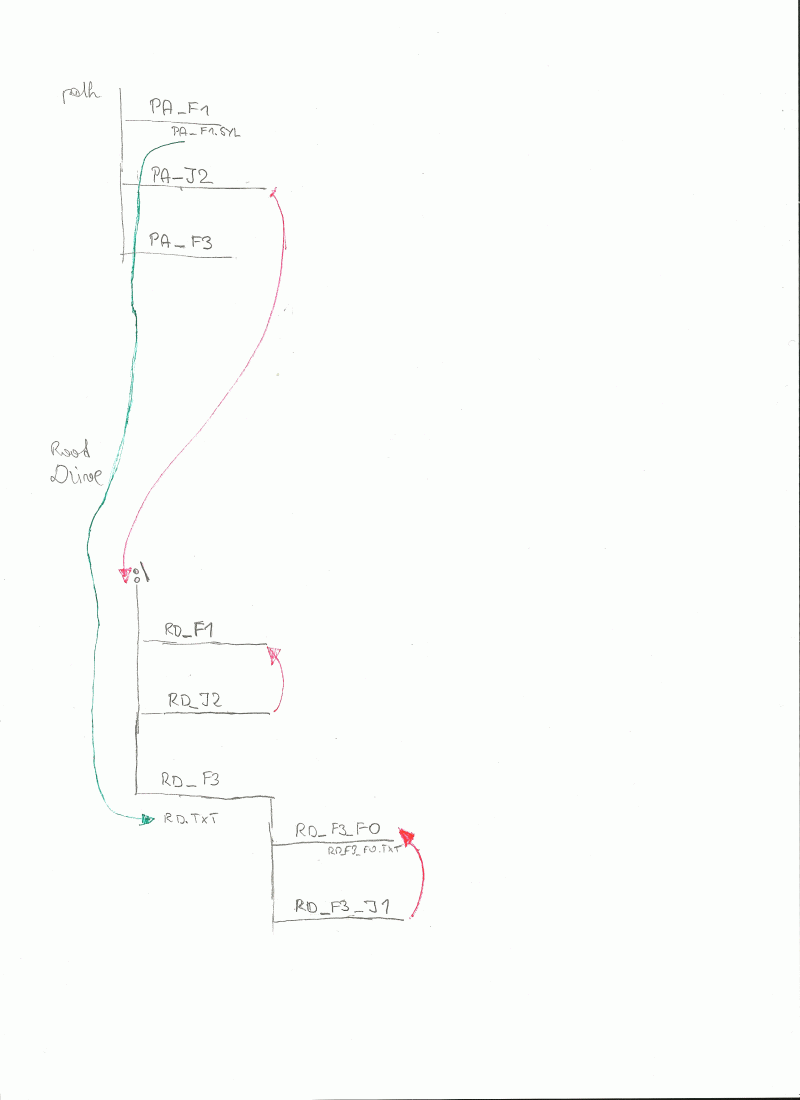 path
PA_F1
PA_F1.SYL
PA_J2
PA_F3
Rood
Drive
:\
RD_F1
RD_J2
RD_F3
RD.TXT
RD_F3_F0
RD_F3_F0.TXT
RD_F3_J1